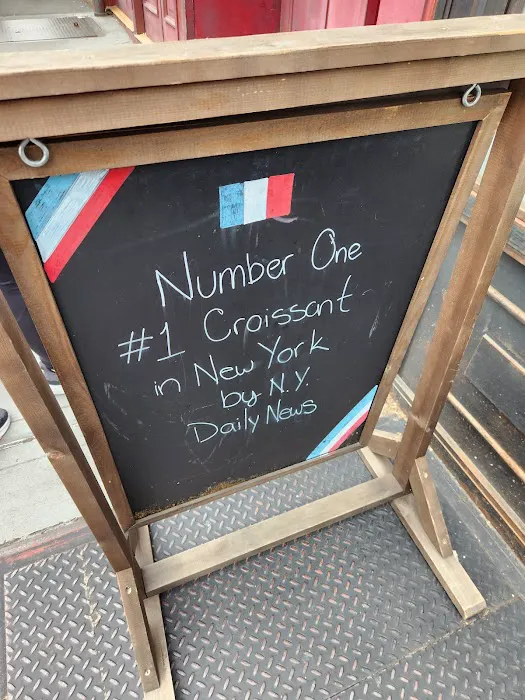 Number One
#1 Croissant
in New York
by N.Y.
Daily News